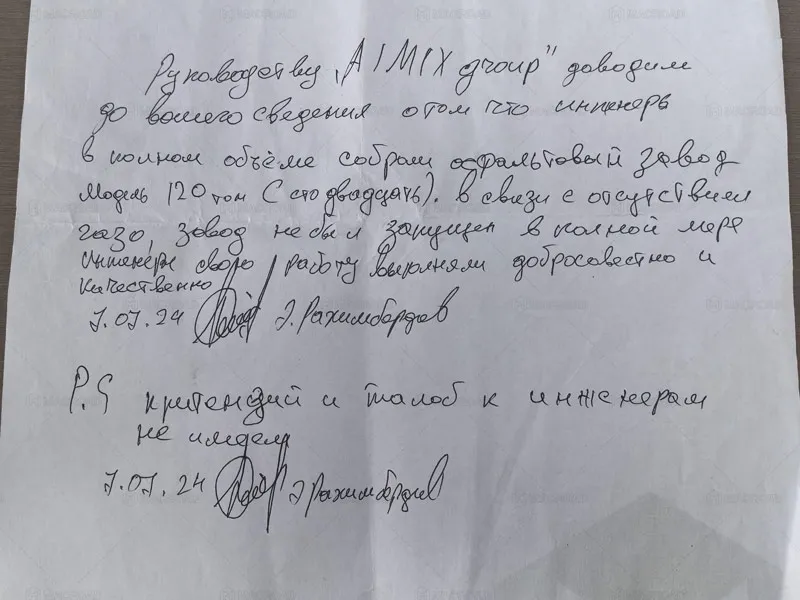 Руководству „AIMIX group" доводим
до вашего сведения о том что инженеры
в полном объёме собрали асфальтовый завод
модель 120 тон (сто двадцать). в связи с отсутствием
газо, завод не был запущен в полной мере
инженеры свою работу выполняли добросовестно и
качественно
7.07.24 Э. Рахимбердиев
P.S притензий и жалоб к инженерам
не имеем
7.07.24 Э. Рахимбердиев